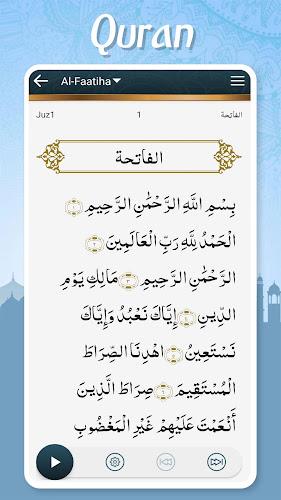 Quran
Al-Faatiha
Juz1 1 الفاتحة
الفاتحة
بِسْمِ اللَّهِ الرَّحْمَٰنِ الرَّحِيمِ ١
الْحَمْدُ لِلَّهِ رَبِّ الْعَالَمِينَ ٢
الرَّحْمَٰنِ الرَّحِيمِ ٣ مَالِكِ يَوْمِ
الدِّينِ ٤ إِيَّاكَ نَعْبُدُ وَإِيَّاكَ
نَسْتَعِينُ ٥ اهْدِنَا الصِّرَاطَ
الْمُسْتَقِيمَ ٦ صِرَاطَ الَّذِينَ
أَنْعَمْتَ عَلَيْهِمْ غَيْرِ الْمَغْضُوبِ